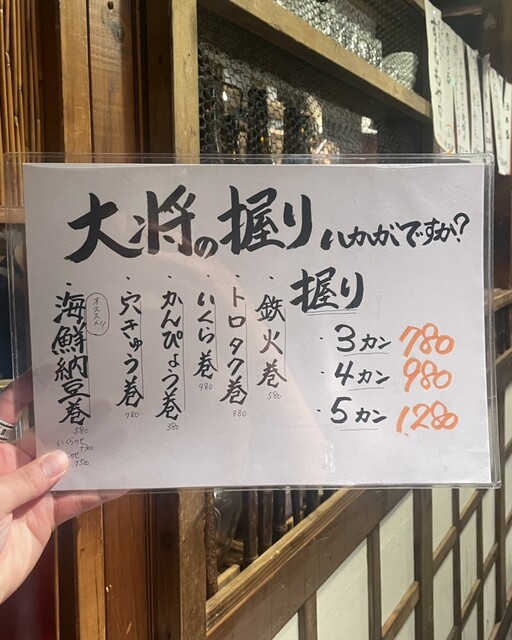 大将の握りいかがですか?
握り
・3カン 780
・4カン 980
・5カン 1,280
・鉄火巻 580
・トロタク巻 880
・いくら巻 980
・かんぴょう巻 380
・穴きゅう巻 780
・海鮮納豆巻 580
オススメ!!
いくらのせ